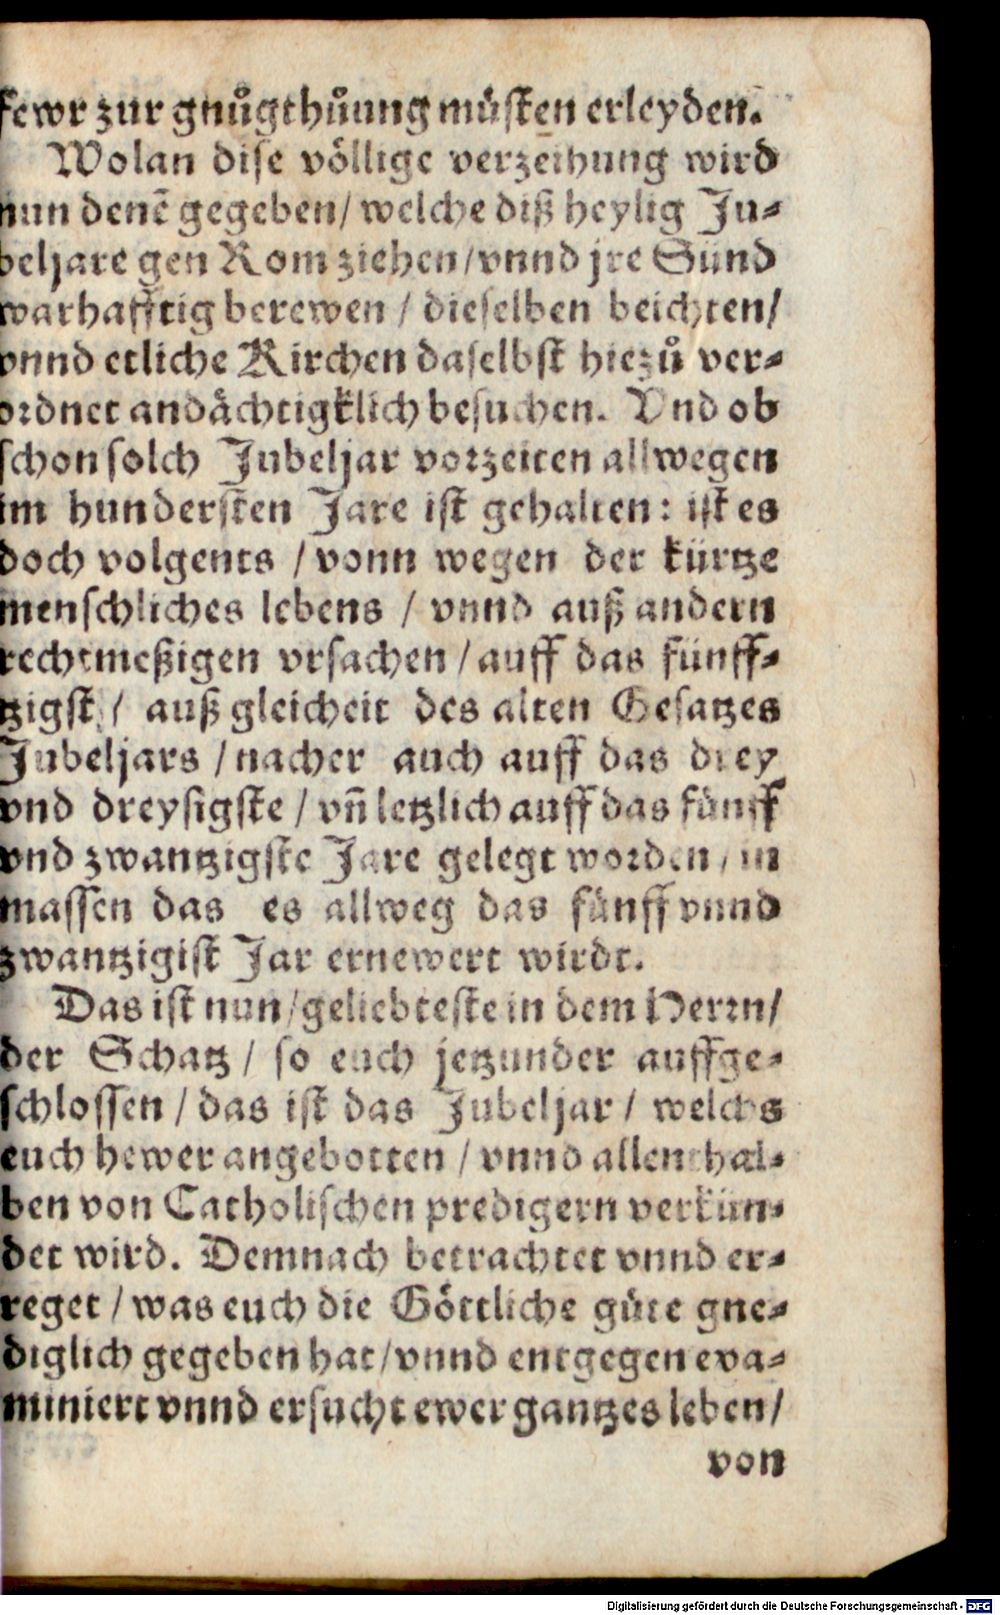 fewr zur gnůgthůung müsten erleyden.
Wolan dise völlige verzeihung wird
nun denē gegeben / welche diß heylig Ju-
beljare gen Rom ziehen / vnnd jre Sünd
warhafftig berewen / dieselben beichten /
vnnd etliche Kirchen daselbst hiezů ver-
ordnet andächtigklich besuchen. Vnd ob
schon solch Jubeljar vorzeiten allwegen
im hundersten Jare ist gehalten: ist es
doch volgents / vonn wegen der kürtze
menschliches lebens / vnnd auß andern
rechtmeßigen vrsachen / auff das fünff-
tzigst / auß gleicheit des alten Gesatzes
Jubeljars / nacher auch auff das drey
vnd dreysigste / vn̄ letzlich auff das fünff
vnd zwantzigste Jare gelegt worden / in
massen das es allweg das fünff vnnd
zwantzigist Jar ernewert wirdt.
Das ist nun / geliebteste in dem Herrn /
der Schatz / so euch jetzunder auffge-
schlossen / das ist das Jubeljar / welchs
euch hewer angebotten / vnnd allenthal-
ben von Catholischen predigern verkün-
det wird. Demnach betrachtet vnnd er-
reget / was euch die Göttliche güte gne-
diglich gegeben hat / vnnd entgegen exa-
miniert vnnd ersucht ewer gantzes leben /
von
Digitalisierung gefördert durch die Deutsche Forschungsgemeinschaft - DFG